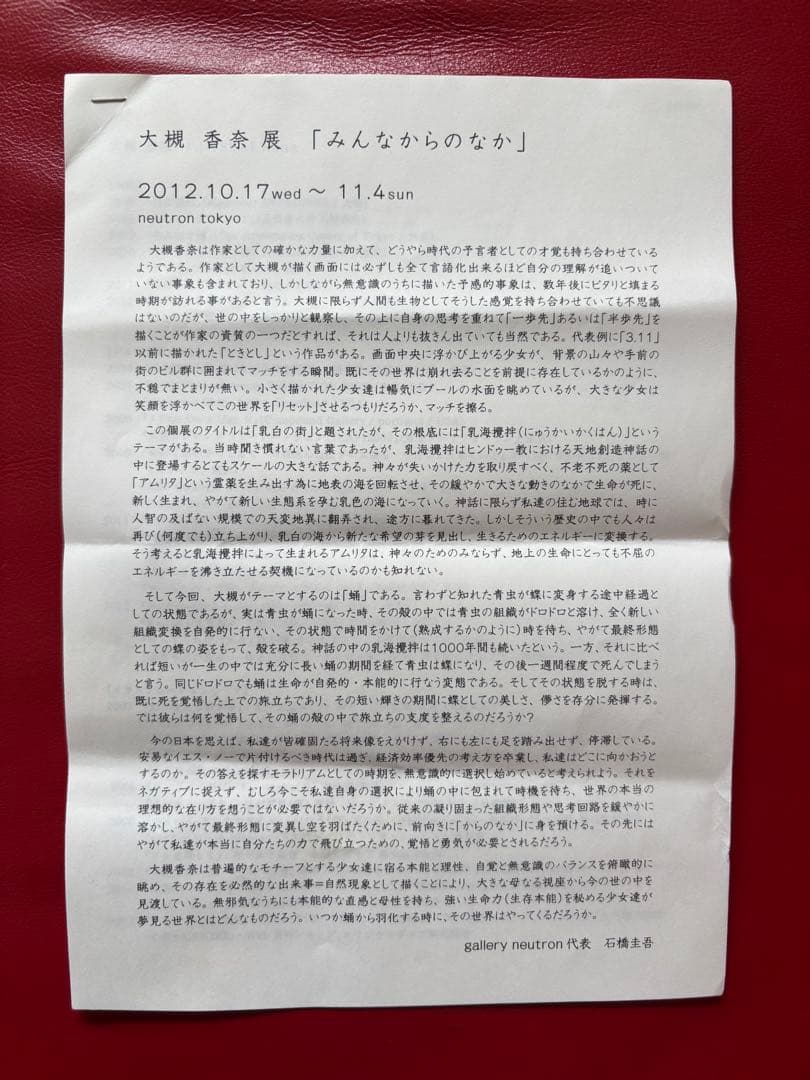 大槻 香奈 展 「みんなからのなか」
2012.10.17wed ～ 11.4sun
neutron tokyo
大槻香奈は作家としての確かな力量に加えて、どうやら時代の予言者としての才覚も持ち合わせている
ようである。作家として大槻が描く画面には必ずしも全て言語化出来るほど自分の理解が追いついてい
ていない事象も含まれており、しかしながら無意識のうちに描いた予感的事象は、数年後にピタリと填まる
時期が訪れる事があると言う。大槻に限らず人間も生物としてそうした感覚を持ち合わせていても不思議
はないのだが、世の中をしっかりと観察し、その上に自身の思考を重ねて「一歩先」あるいは「半歩先」を
描くことが作家の資質の一つだとすれば、それは人よりも抜きん出ていても当然である。代表例に「3.11」
以前に描かれた「ときとし」という作品がある。画面中央に浮かび上がる少女が、背景の山々や手前の
街のビル群に囲まれてマッチをする瞬間。既にその世界は崩れ去ることを前提に存在しているかのように、
不穏でまとまりが無い。小さく描かれた少女達は暢気にプールの水面を眺めているが、大きな少女は
笑顔を浮かべてこの世界を「リセット」させるつもりだろうか、マッチを擦る。
この個展のタイトルは「乳白の街」と題されたが、その根底には「乳海攪拌（にゅうかいかくはん）」という
テーマがある。当時聞き慣れない言葉であったが、乳海攪拌はヒンドゥー教における天地創造神話の
中に登場するとてもスケールの大きな話である。神々が失いかけた力を取り戻すべく、不老不死の薬として
「アムリタ」という霊薬を生み出す為に地表の海を回転させ、その緩やかで大きな動きのなかで生命が死に、
新しく生まれ、やがて新しい生態系を孕む乳色の海になっていく。神話に限らず私達の住む地球では、時に
人智の及ばない規模での天変地異に翻弄され、途方に暮れてきた。しかしそういう歴史の中でも人々は
再び（何度でも）立ち上がり、乳白の海から新たな希望の芽を見出し、生きるためのエネルギーに変換する。
そう考えると乳海攪拌によって生まれるアムリタは、神々のためのみならず、地上の生命にとっても不屈の
エネルギーを沸き立たせる契機になっているのかも知れない。
そして今回、大槻がテーマとするのは「蛹」である。言わずと知れた青虫が蝶に変身する途中経過と
しての状態であるが、実は青虫が蛹になった時、その殻の中では青虫の組織がドロドロと溶け、全く新しい
組織変換を自発的に行ない、その状態で時間をかけて（熟成するかのように）時を待ち、やがて最終形態
としての蝶の姿をもって、殻を破る。神話の中の乳海攪拌は1000年間も続いたという。一方、それに比べ
れば短いが一生の中では充分に長い蛹の期間を経て青虫は蝶になり、その後一週間程度で死んでしまう
と言う。同じドロドロでも蛹は生命が自発的・本能的に行なう変態である。そしてその状態を脱する時は、
既に死を覚悟した上での旅立ちであり、その短い輝きの期間に蝶としての美しさ、儚さを存分に発揮する。
では彼らは何を覚悟して、その蛹の殻の中で旅立ちの支度を整えるのだろうか？
今の日本を思えば、私達が皆確固たる将来像をえがけず、右にも左にも足を踏み出せず、停滞している。
安易なイエス・ノーで片付けるべき時代は過ぎ、経済効率優先の考え方を卒業し、私達はどこに向かおうと
するのか。その答えを探すモラトリアムとしての時期を、無意識的に選択し始めていると考えられよう。それを
ネガティブに捉えず、むしろ今こそ私達自身の選択により蛹の中に包まれて時機を待ち、世界の本当の
理想的な在り方を想うことが必要ではないだろうか。従来の凝り固まった組織形態や思考回路を緩やかに
溶かし、やがて最終形態に変異し空を羽ばたくために、前向きに「からのなか」に身を預ける。その先には
やがて私達が本当に自分たちの力で飛び立つための、覚悟と勇気が必要とされるだろう。
大槻香奈は普遍的なモチーフとする少女達に宿る本能と理性、自覚と無意識のバランスを俯瞰的に
眺め、その存在を必然的な出来事＝自然現象として描くことにより、大きな母なる視座から今の世の中を
見渡している。無邪気なうちにも本能的な直感と母性を持ち、強い生命力（生存本能）を秘める少女達が
夢見る世界とはどんなものだろう。いつか蛹から羽化する時に、その世界はやってくるだろうか。
gallery neutron代表 石橋圭吾